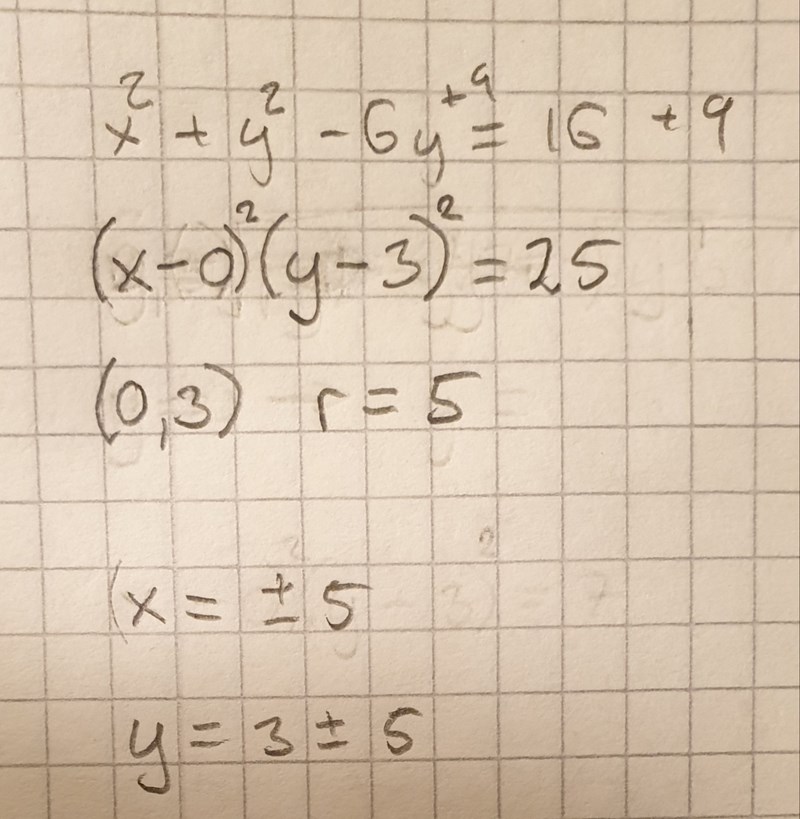 x² + y² - 6y⁺⁹ = 16 + 9
(x-0)²(y-3)² = 25
(0,3) r = 5
x = ± 5
y = 3 ± 5